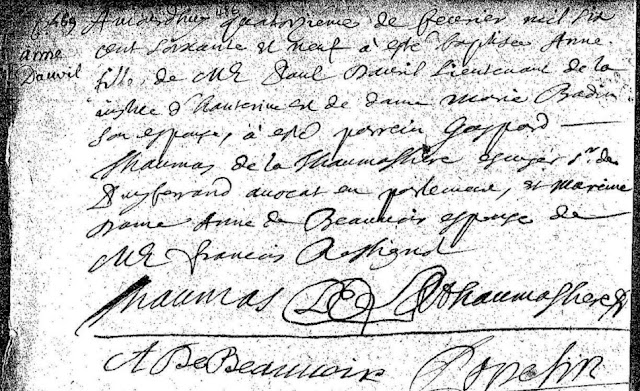 1669
anne
Dauvil
Aujourdhuy quatorziemes de febvrier mil six
cent soixante et neuf à esté baptisée Anne
fille, de ME Paul Dauvil Lieutenant de la
justice d'hauterive et de dame Marie Badin
son espouse, à esté parrein Gaspard
Thaumas de la Thaumassiere escuyer sr. de
Puyferrand avocat en parlement, et mareine
Dame Anne de Beauvois espouse de
ME francois Rossignol
Thaumas Dela Thaumassiere
A De Beauvois